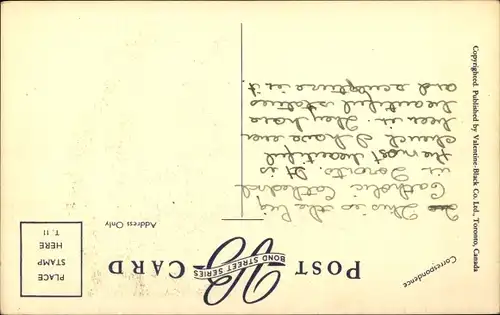 POST CARD
VB
BOND STREET SERIES
PLACE
STAMP
HERE
T. 11
Correspondence
Address Only
This is the big
Catholic Cathedral
in Toronto. It is
the most beautiful
church I have ever
been in. They have
beautiful statues
and sculpture in it
Copyrighted. Published by Valentine-Black Co. Ltd., Toronto, Canada